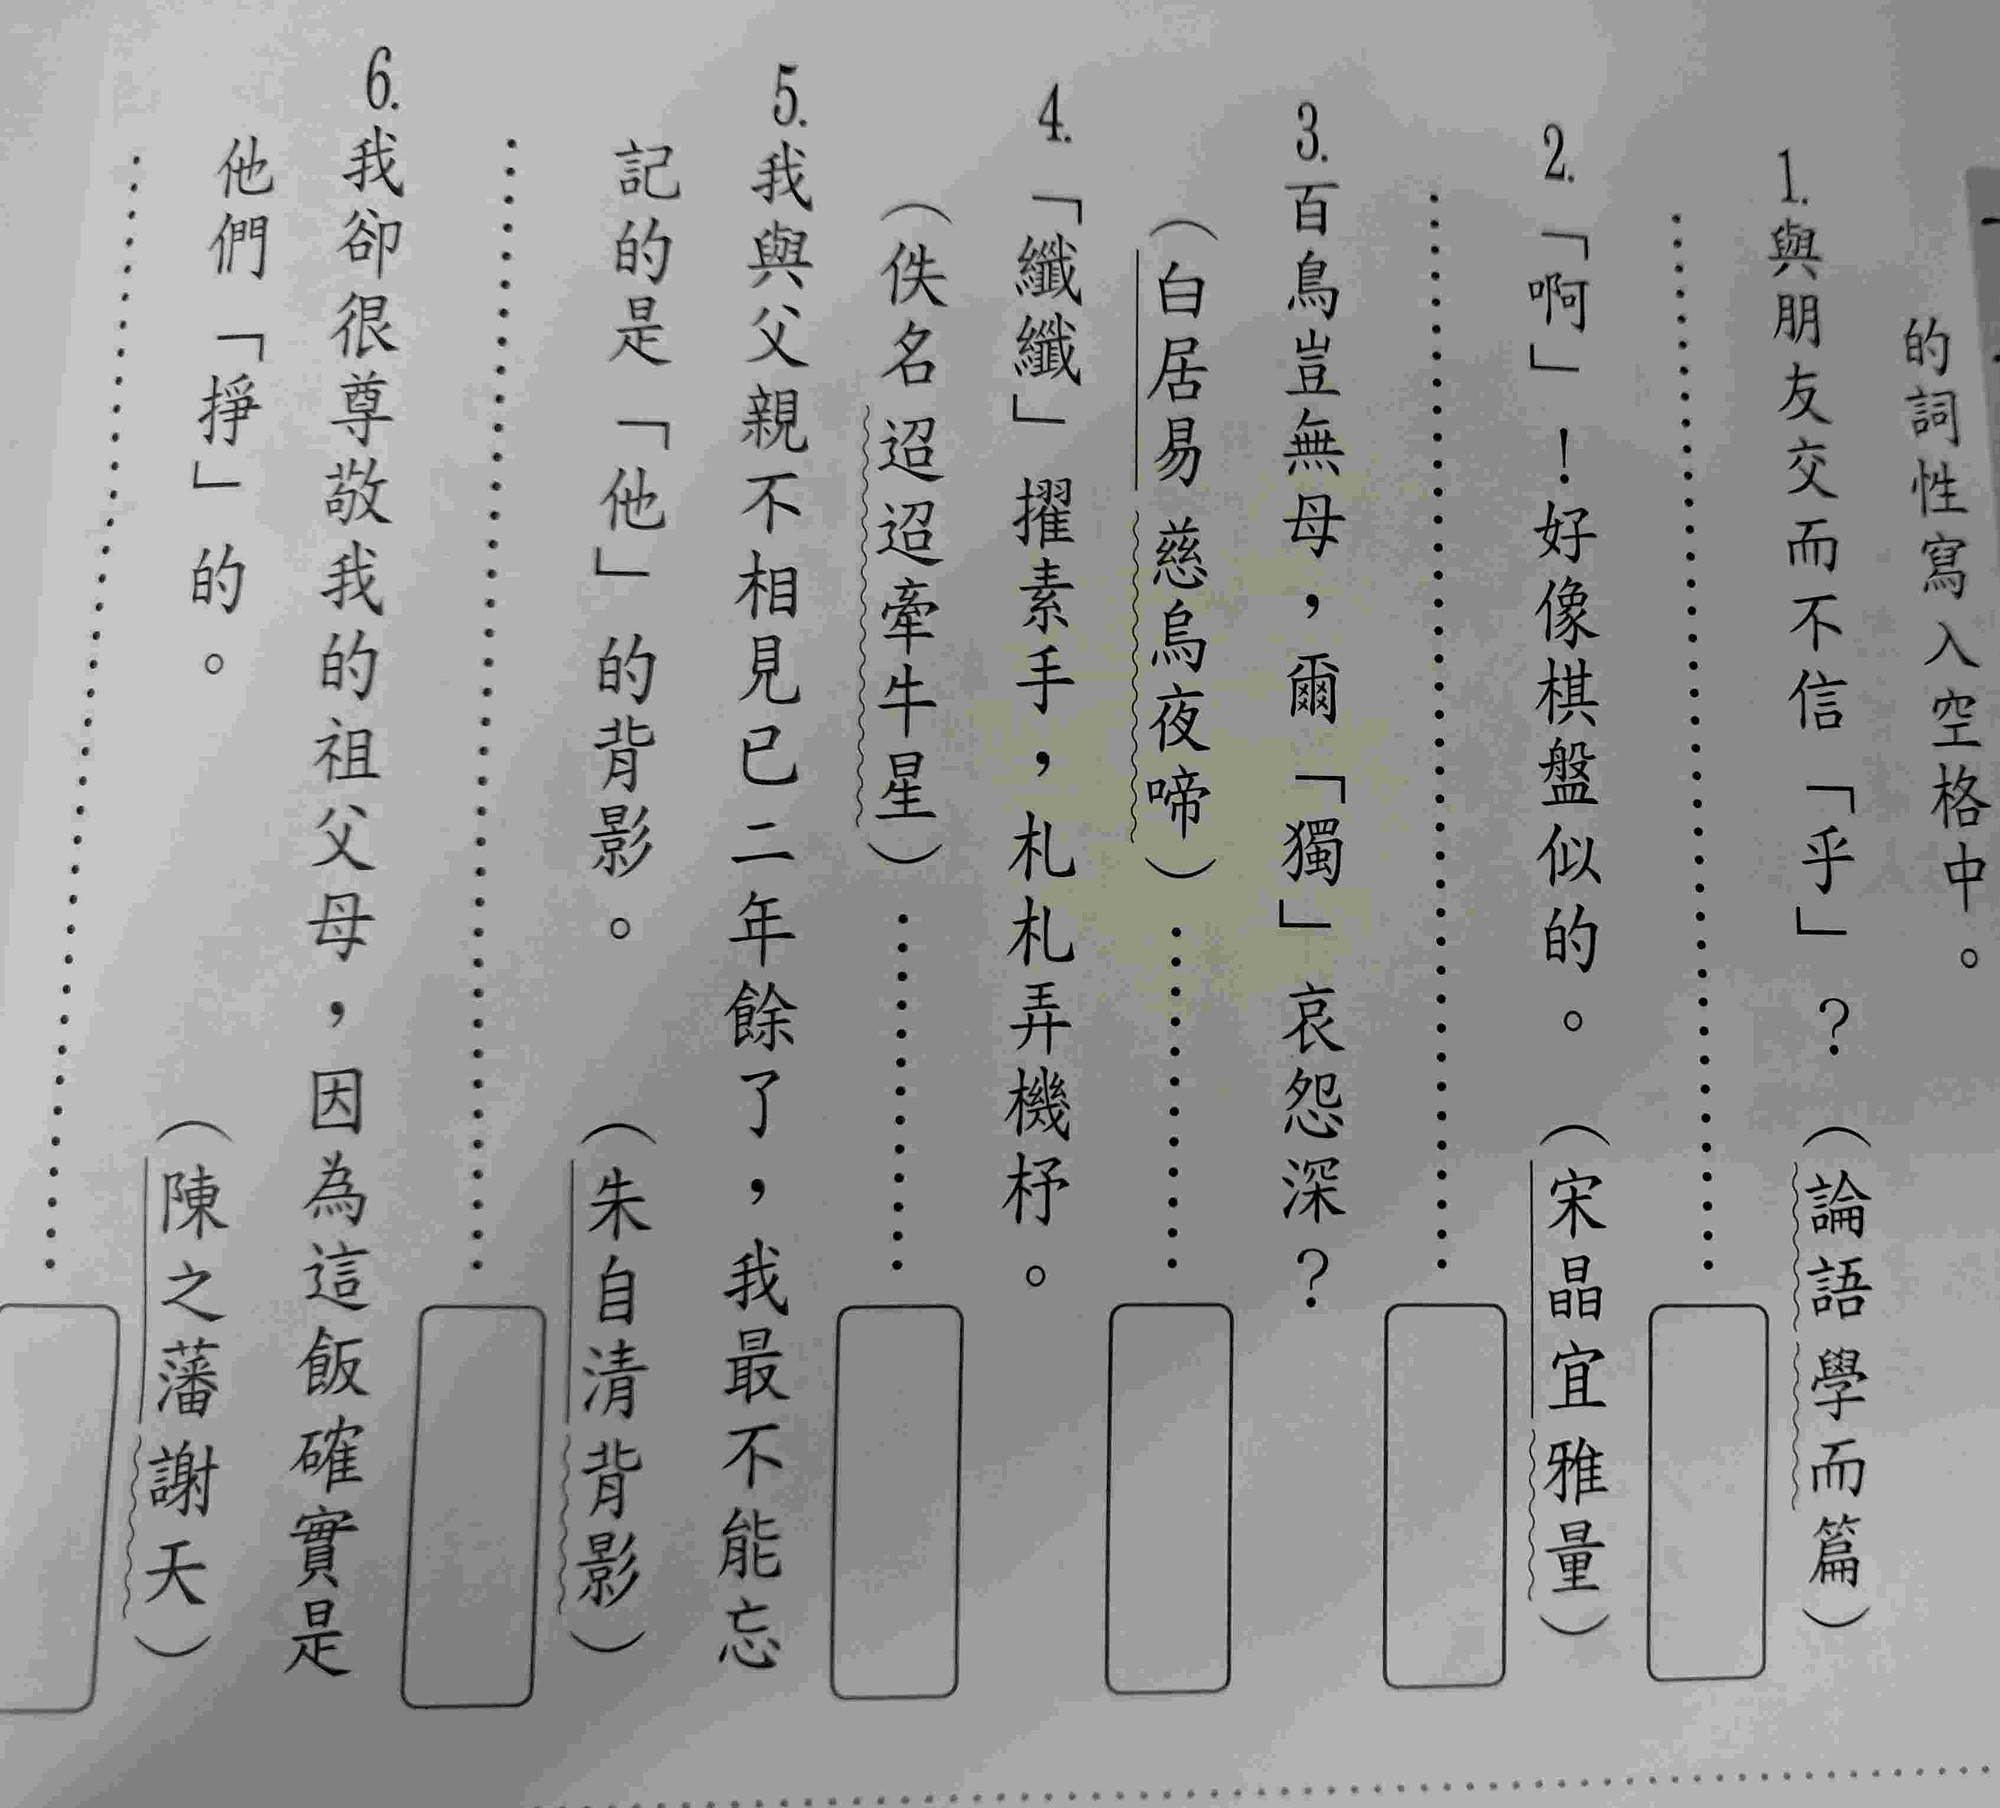 的詞性寫入空格中。
1.與朋友交而不信「乎」?(論語學而篇)
2.「啊」!好像棋盤似的。(宋晶宜雅量)
3.百鳥豈無母,爾「獨」哀怨深?
(白居易慈烏夜啼)
4.「纖纖」擢素手,札札弄機杼。
(佚名迢迢牽牛星)
5.我與父親不相見已二年餘了,我最不能忘
記的是「他」的背影。(朱自清背影)
6.我卻很尊敬我的祖父母,因為這飯確實是
他們「掙」的。(陳之藩謝天)